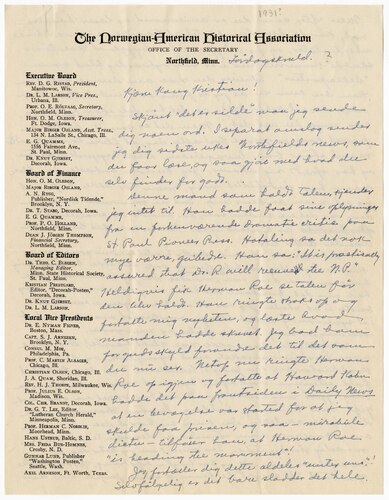 1931?
The Norwegian-American Historical Association
OFFICE OF THE SECRETARY
Northfield, Minn.
Executive Board
REV. D. G. RISTAD, President,
Manitowoc, Wis.
DR. L. M. LARSON, Vice Pres.,
Urbana, Ill.
PROF. O. E. RÖLVAAG, Secretary,
Northfield, Minn.
HON. O. M. OLESON, Treasurer,
Ft. Dodge, Iowa.
MAJOR BIRGER OSLAND, Asst. Treas.,
134 N. LaSalle St., Chicago, Ill.
E. G. QUAMME,
1356 Fairmont Ave.
St. Paul, Minn.
DR. KNUT GJERSET,
Decorah, Iowa.
Board of Finance
HON. O. M. OLESON,
MAJOR BIRGER OSLAND,
A. N. RYGG,
Publisher, "Nordisk Tidende,"
Brooklyn, N. Y.
DR. T. STABO, Decorah, Iowa.
E. G. QUAMME,
P. O. HOLLAND,
Northfield, Minn.
DEAN J. JÖRGEN THOMPSON,
Financial Secretary,
Northfield, Minn.
Board of Editors
DR. THEO. C. BLEGEN,
Managing Editor,
Minn. State Historical Society,
St. Paul, Minn.
KRISTIAN PRESTGARD,
Editor, "Decorah-Posten,"
Decorah, Iowa.
DR. KNUT GJERSET,
DR. L. M. LARSON.
Local Vice Presidents
DR. E. NYMAN FIGVED,
Boston, Mass.
CAPT. S. J. ARNESEN,
Brooklyn, N. Y.
CONSUL M. MOE,
Philadelphia, Pa.
PROF. C. MARTIN ALSAGER,
Chicago, Ill.
CHRISTIAN OLSEN, Chicago, Ill.
J. A. QUAM, Sheridan, Ill.
REV. H. J. THORPE, Milwaukee, Wis.
PROF. JULIUS E. OLSON,
Madison, Wis.
COL. CHR. BRANDT, Decorah, Iowa.
DR. G. T. LEE, Editor,
"Lutheran Church Herald,"
Minneapolis, Minn.
PROF. HERMAN C. NORDLIE,
Moorhead, Minn.
HANS USTRUD, Baltic, S. D.
MRS. FREDA BUE-HOMNES,
Crosby, N. Dak.
GUNNAR LUND, Publisher
"Washington Posten,"
Seattle, Wash.
AXEL ARNESON, Ft. Worth, Texas.
Kjære Kong Kristian!
Skjønt "det er silde" maa jeg sende
dig noen ord. I separat omslag sendes
jeg dig sidste ukes Northfields news, som
du faar lese, og saa gjøre med hvad du
selv finder for godt.
Denne mand som holdt talen, kjender
jeg intet til. Han hadde faat sine oplysninger
fra en forhenværende dramatic critic paa
St Paul Pioneer Press. Hotaling sa det nok
mye værre, guibedre. Han sa: "It is practically
assured that Dr. R will receive the N.P."
Heldigvis fik Herman Roe se talen før
den blev holdt. Han ringte straks op og
fortalte mig nyheten, og lovte hvad
manden hadde skrevet. Jeg bad ham
for guds skyld forandre det til det som
du nu ser. Netop nu ringte Herman
Roe op igjen og fortalte at Harvard Kahn
hadde det paa frontsiden i Daily News
at en bevægelse var startet for at jeg
skulde faa prisen, og saa — mirabile
dictu — tilføier han, at Herman Roe
"is heading the movement"!
Jeg fortæller dig dette aldeles "under uns."
Selvfølgelig er det bare sladder det hele,